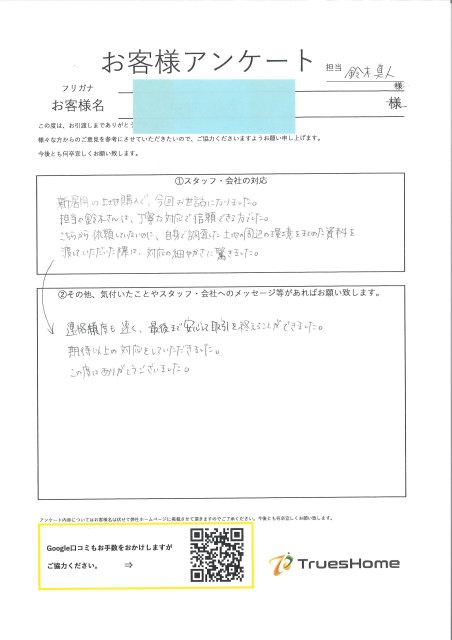 お客様アンケート
担当 鈴木真人
フリガナ
様
お客様名
様
この度は、お引渡しまでありがとう
様々な方からのご意見を参考にさせていただきたいので、ご協力くださいますようお願い申し上げます。
今後とも何卒宜しくお願い致します。
①スタッフ・会社の対応
新居用の土地購入で、今回お世話になりました。
担当の鈴木さんは、丁寧な対応で信頼できる方でした。
こちらから依頼していないのに、自身で調査した土地の周辺の環境をまとめた資料を
渡していただいた際は、対応の細やかさに驚きました。
②その他、気付いたことやスタッフ・会社へのメッセージ等があればお願い致します。
連絡頻度も速く、最後まで安心して取引を終えることができました。
期待以上の対応をしていただきました。
この度はありがとうございました。
アンケート内容についてはお客様名は伏せて弊社ホームページに掲載させて頂きますのでご了承ください。今後とも何卒宜しくお願い致します。
Google口コミもお手数をおかけしますが
ご協力ください。 ⇒
TruesHome